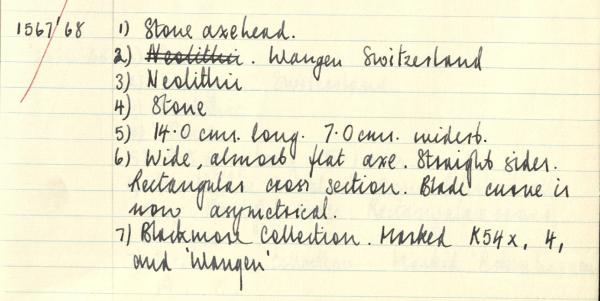 1567/68 1) Stone axehead.
2) Neolithic. Wangen Switzerland
3) Neolithic
4) Stone
5) 14.0 cms. long. 7.0 cms. widest.
6) Wide, almost flat axe. Straight sides.
Rectangular cross section. Blade curve is
now asymetrical.
7) Blackmore Collection. Marked K54x, 4,
and 'Wangen'